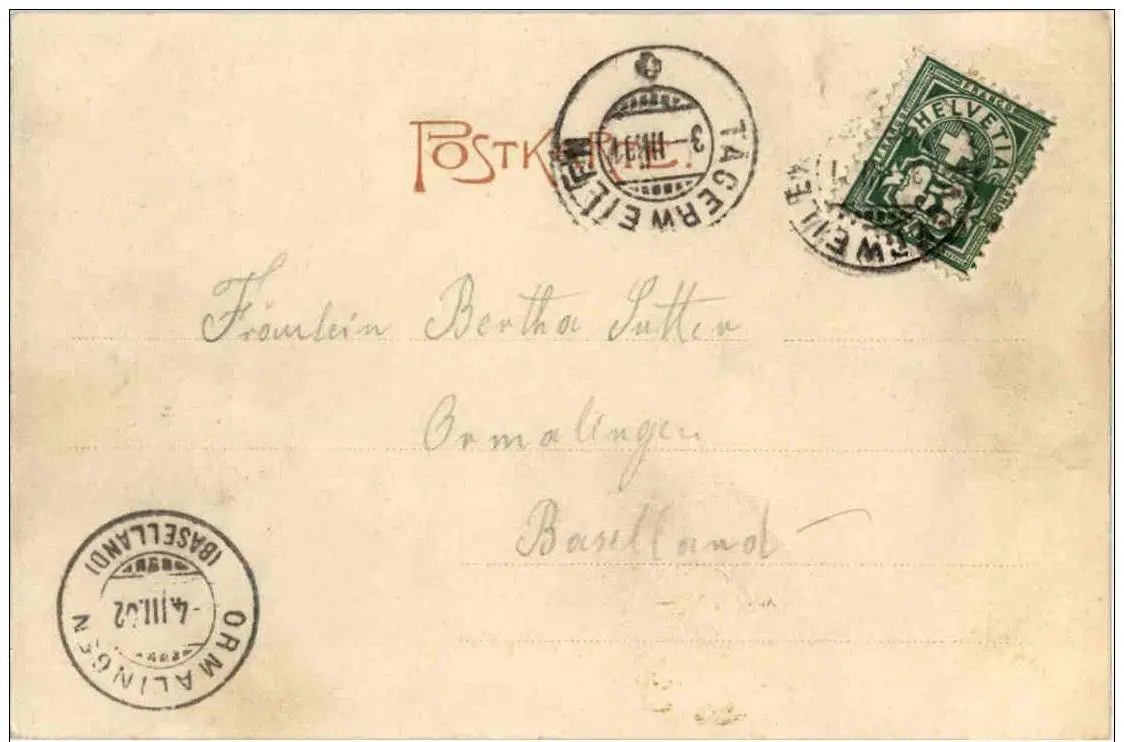 POSTKARTE.
TÄGERWEILEN
3 III
HELVETIA
FRANCO
FRANCO
FRANCO
Fräulein Bertha Sutter
Ormalingen
Baselland
ORMALINGEN
(BASELLAND)
-4.III.02